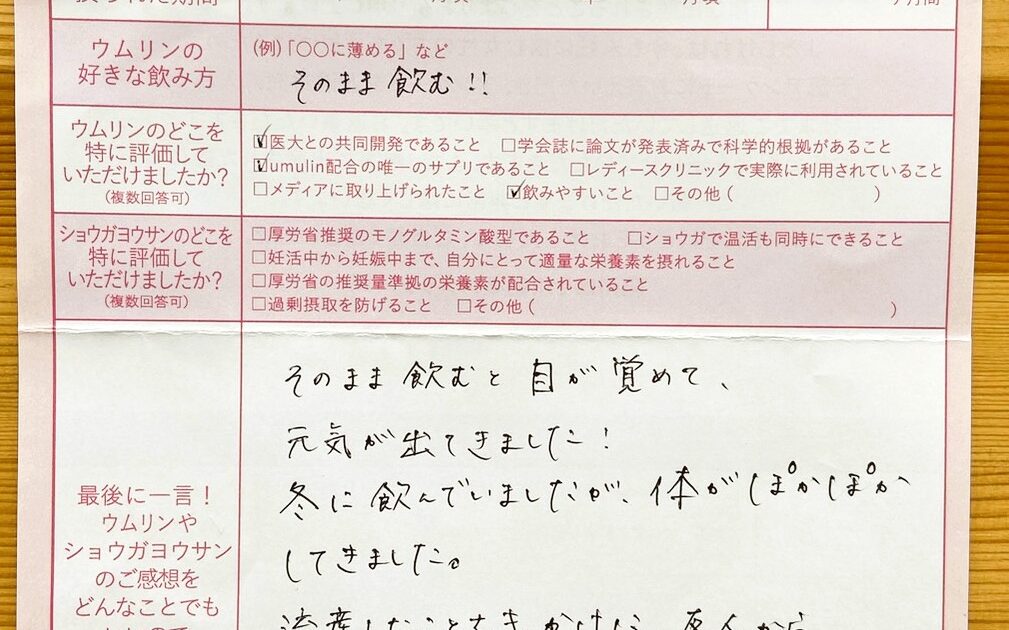 ウムリンの
好きな飲み方
(例)「〇〇に薄める」など
そのまま飲む!!
ウムリンのどこを
特に評価して
いただけましたか?
(複数回答可)
☑医大との共同開発であること □学会誌に論文が発表済みで科学的根拠があること
☑umulin配合の唯一のサプリであること □レディースクリニックで実際に利用されていること
□メディアに取り上げられたこと ☑飲みやすいこと □その他( )
ショウガヨウサンのどこを
特に評価して
いただけましたか?
(複数回答可)
□厚労省推奨のモノグルタミン酸型であること □ショウガで温活も同時にできること
□妊活中から妊娠中まで、自分にとって適量な栄養素を摂れること
□厚労省の推奨量準拠の栄養素が配合されていること
□過剰摂取を防げること □その他( )
最後に一言!
ウムリンや
ショウガヨウサン
のご感想を
どんなことでも
そのまま飲むと目が覚めて、
元気が出てきました!
冬に飲んでいましたが、体がぽかぽか
してきました。